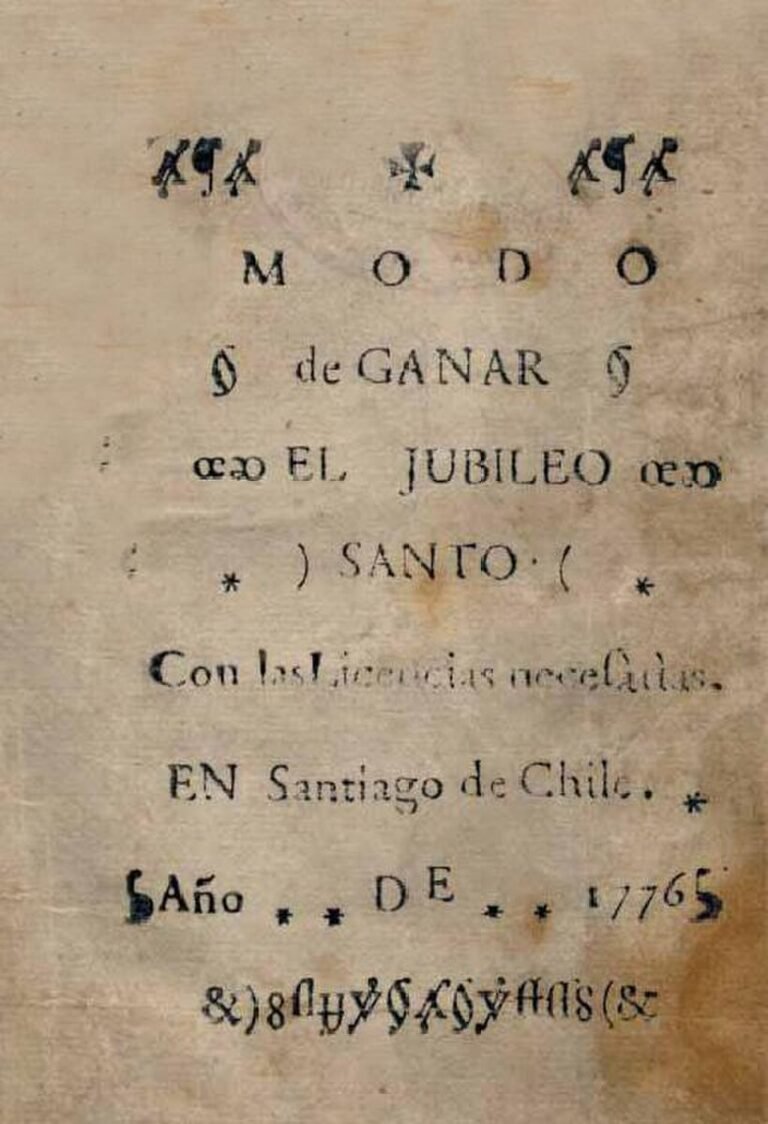 M O D O
de GANAR
EL JUBILEO
) SANTO · (
Con las Licencias necesſarias.
EN Santiago de Chile. *
Año * * DE * * 1776